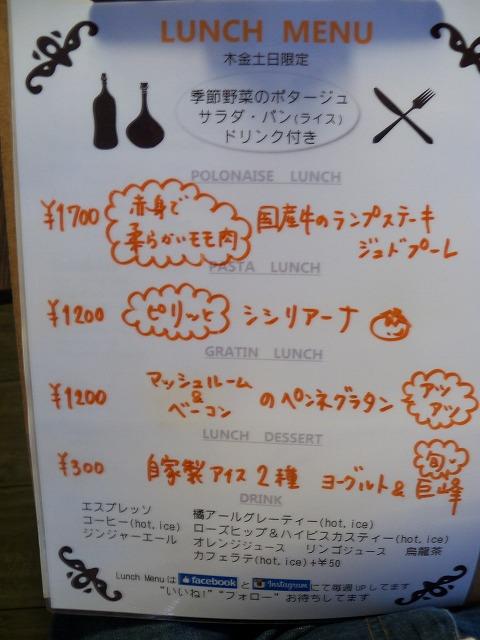 LUNCH MENU
木金土日限定
季節野菜のポタージュ
サラダ・パン(ライス)
ドリンク付き
POLONAISE LUNCH
¥1700 赤身で柔らかいモモ肉 国産牛のランプステーキ
ジュドプーレ
PASTA LUNCH
¥1200 ピリッと シシリアーナ
GRATIN LUNCH
¥1200 マッシュルーム&ベーコン のペンネグラタン アツアツ
LUNCH DESSERT
旬
¥300 自家製アイス2種 ヨーグルト&巨峰
DRINK
エスプレッソ
コーヒー(hot,ice)
ジンジャーエール
橘アールグレーティー(hot,ice)
ローズヒップ&ハイビスカスティー(hot,ice)
オレンジジュース リンゴジュース 烏龍茶
カフェラテ(hot,ice)+¥50
Lunch Menuは facebook と Instagram にて毎週UPしてます
"いいね!" "フォロー" お待ちしてます